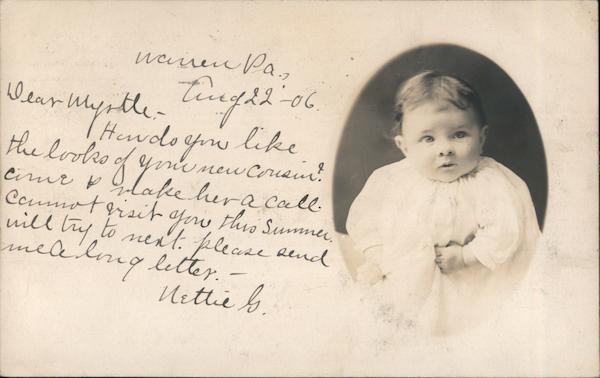 Warren Pa.,
Aug 22 - 06.
Dear Myrtle, -
How do you like
the looks of your new cousin?
come & make her a call.
cannot visit you this summer.
will try to next. please send
me a long letter. -
Nettie G.